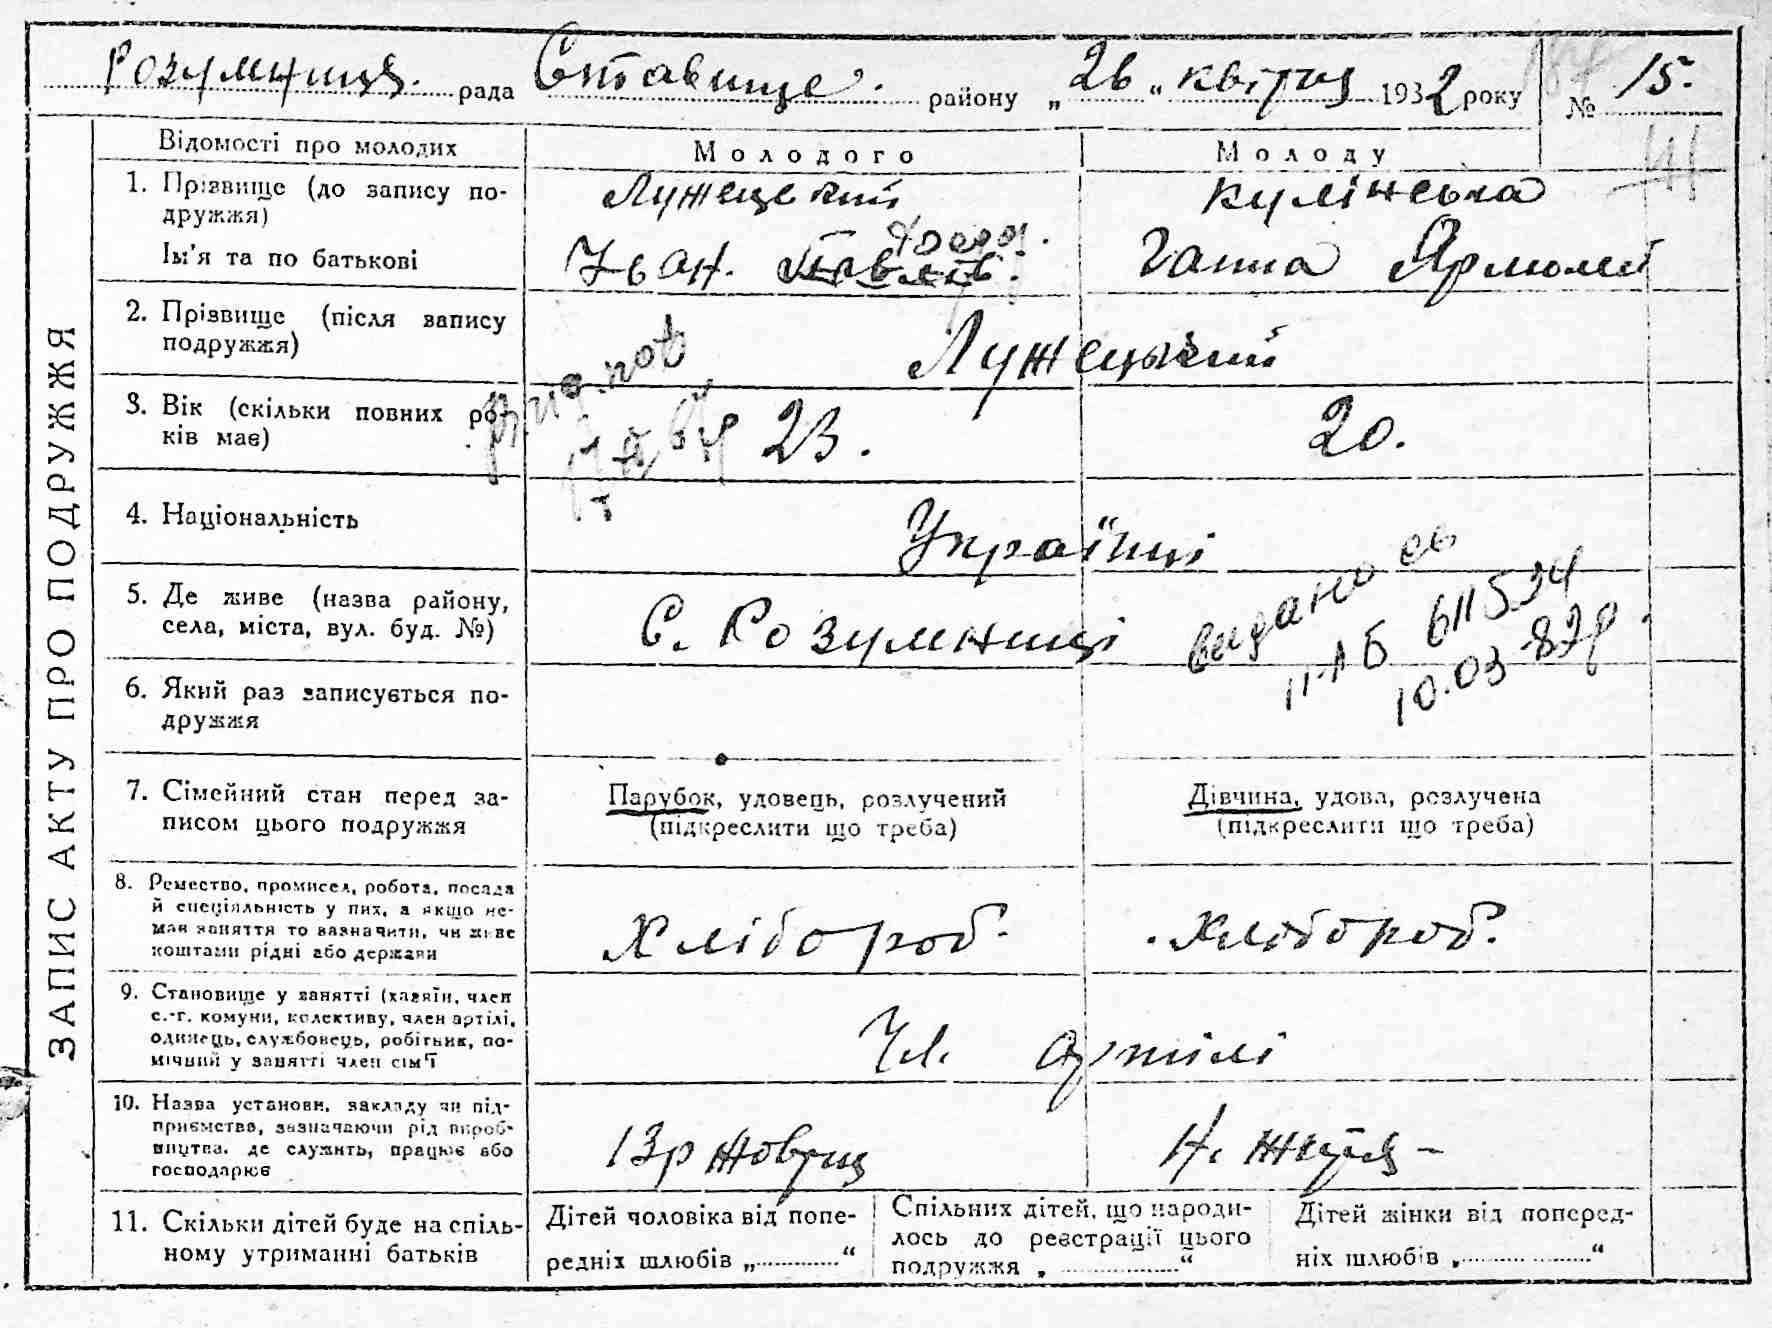 Розумниця. рада Ставище. району „26“ квітня 1932 року № 15.
ЗАПИС АКТУ ПРО ПОДРУЖЖЯ
Відомості про молодих
Молодого
Молоду
1. Прізвище (до запису по-
дружжя)
Ім'я та по батькові
Лужецький
Іван.
Кулінська
Ганна Ярмолей
2. Прізвище (після запису
подружжя)
Лужецький
3. Вік (скільки повних ро-
ків має)
23.
20.
4. Національність
Українці
5. Де живе (назва району,
села, міста, вул. буд. №)
С. Розумниці
видано св
II-АБ 611534
10.03.82р.
6. Який раз записується по-
дружжя
7. Сімейний стан перед за-
писом цього подружжя
Парубок, удовець, розлучений
(підкреслити що треба)
Дівчина, удова, розлучена
(підкреслити що треба)
8. Ремество, промисел, робота, посада
й спеціяльність у них, а якщо не-
має заняття то зазначити, чи живе
коштами рідні або держави
Хлібороб.
Хлібороб.
9. Становище у занятті (хазяїн, член
с.-г. комуни, колективу, член артілі,
одинець, службовець, робітник, по-
мічний у занятті член сім'ї
Чл. артілі
10. Назва установи, закладу чи під-
приємства, зазначаючи рід вироб-
ництва, де служить, працює або
господарює
13р Жовтня
11. Скільки дітей буде на спіль-
ному утриманні батьків
Дітей чоловіка від попе-
редніх шлюбів „ “
Спільних дітей, що народи-
лось до реєстрації цього
подружжя „ “
Дітей жінки від поперед-
ніх шлюбів „ “